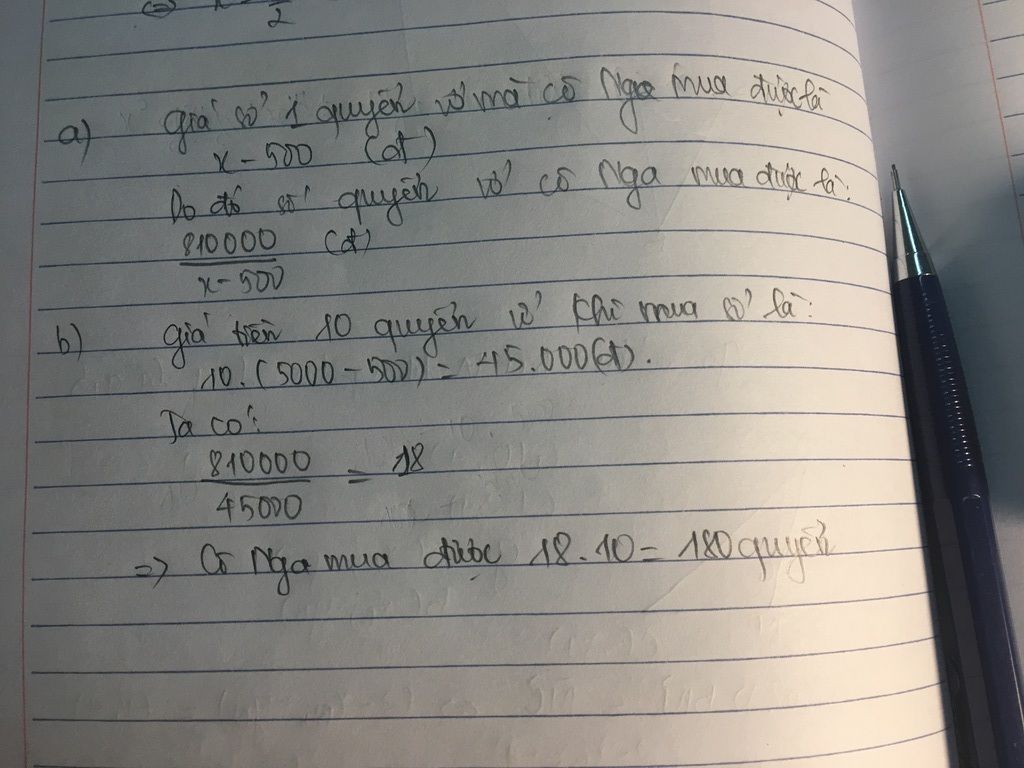 2
a) giá sỉ 1 quyển vở mà cô Nga mua được là
x - 500 (đ)
Do đó số quyển vở cô Nga mua được là:
810000 (đ)
x - 500
b) giá tiền 10 quyển vở khi mua sỉ là:
10.(5000 - 500) = 45.000(đ).
Ta có:
810000 = 18
45000
=> Cô Nga mua được 18.10 = 180 quyển